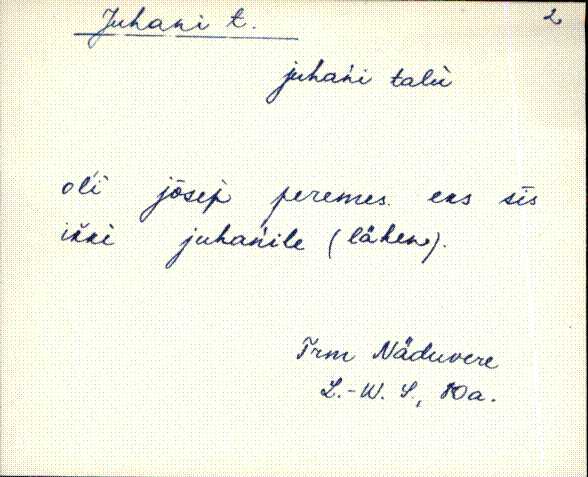 Juhani t. 2
juhańi talu
oĺi jōsep peremes. eks sīs
ikki juhańile (lähen).
Trm Näduvere
L.-W. S., 10a.